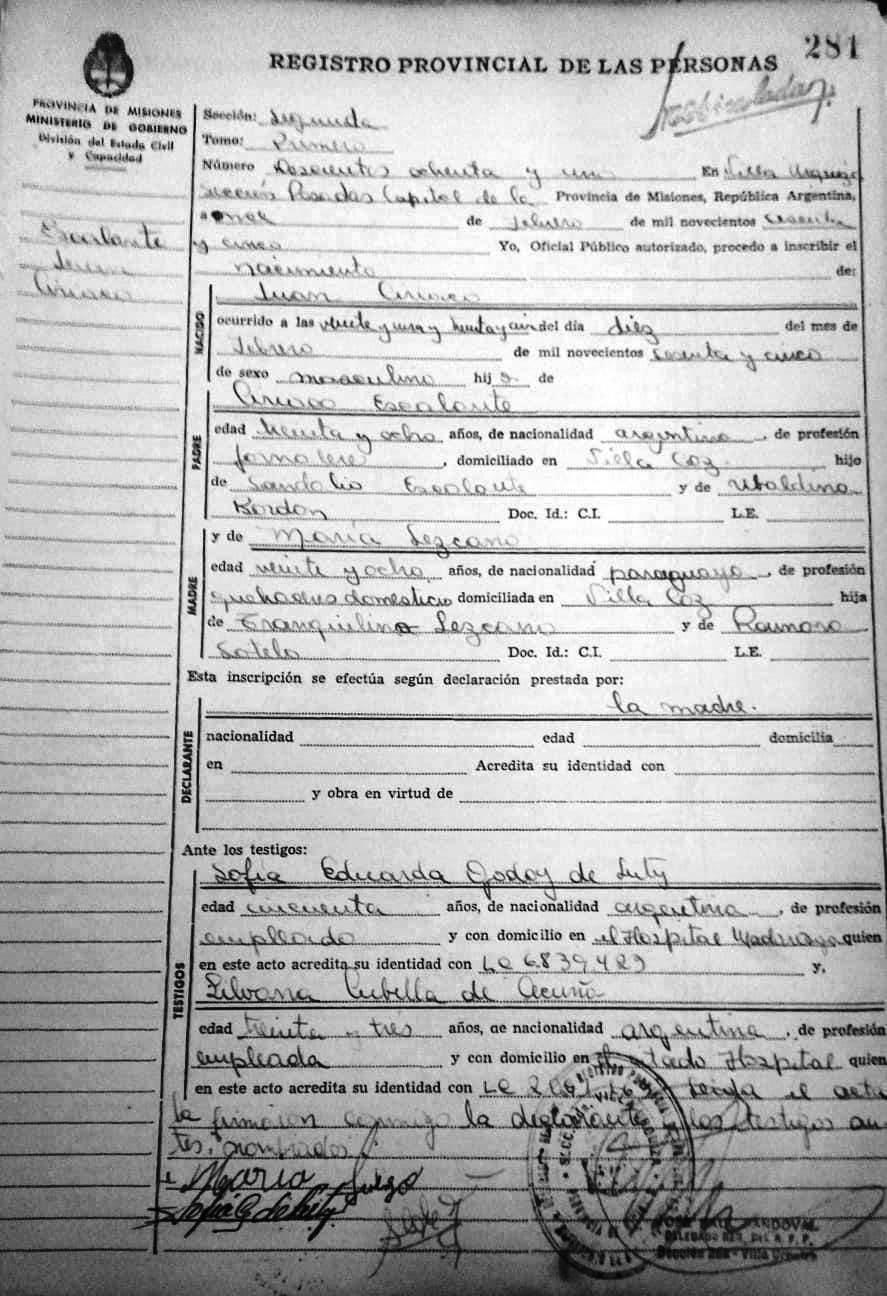 281
REGISTRO PROVINCIAL DE LAS PERSONAS
PROVINCIA DE MISIONES
MINISTERIO DE GOBIERNO
División del Estado Civil
y Capacidad
Sección: Segunda
Tomo: Primero
Número Doscientos ochenta y uno En Villa Urquiza
sección Posadas Capital de la Provincia de Misiones, República Argentina,
a once de febrero de mil novecientos sesenta
y cinco Yo, Oficial Público autorizado, procedo a inscribir el
nacimiento de:
Escalante
Juan
Ciriaco
NACIDO
Juan Ciriaco
ocurrido a las veinte y una y treinta y cinco del día diez del mes de
febrero de mil novecientos sesenta y cinco
de sexo masculino hijo de
PADRE
Ciriaco Escalante
edad treinta y ocho años, de nacionalidad argentino, de profesión
jornalero, domiciliado en Villa Coz hijo
de Sandalio Escalante y de Ubaldina
Bordon Doc. Id.: C.I. L.E.
MADRE
y de María Lezcano
edad veinte y ocho años, de nacionalidad paraguaya, de profesión
quehaceres domesticio domiciliada en Villa Coz hija
de Tranquilino Lezcano y de Ramona
Sotelo Doc. Id.: C.I. L.E.
Esta inscripción se efectúa según declaración prestada por:
la madre.
DECLARANTE
nacionalidad edad domicilia
en Acredita su identidad con
y obra en virtud de
Ante los testigos:
TESTIGOS
Sofia Eduarda Godoy de
edad cincuenta años, de nacionalidad argentina, de profesión
empleada y con domicilio en el Hospital Madariaga quien
en este acto acredita su identidad con LC 6839429 y,
Silvana Cubilla de Acuña
edad treinta y tres años, de nacionalidad argentina, de profesión
empleada y con domicilio en el citado Hospital quien
en este acto acredita su identidad con LC Leida el acta
la firmaron conmigo la declarante y los testigos an
tes nombrados
Maria
SANDOVAL
DELEGADO
Sección 2da - Villa Urquiza